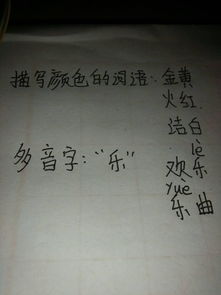 描写颜色的词语:金黄
火红
洁白
多音字:“乐”
lè
欢乐
yuè
乐曲